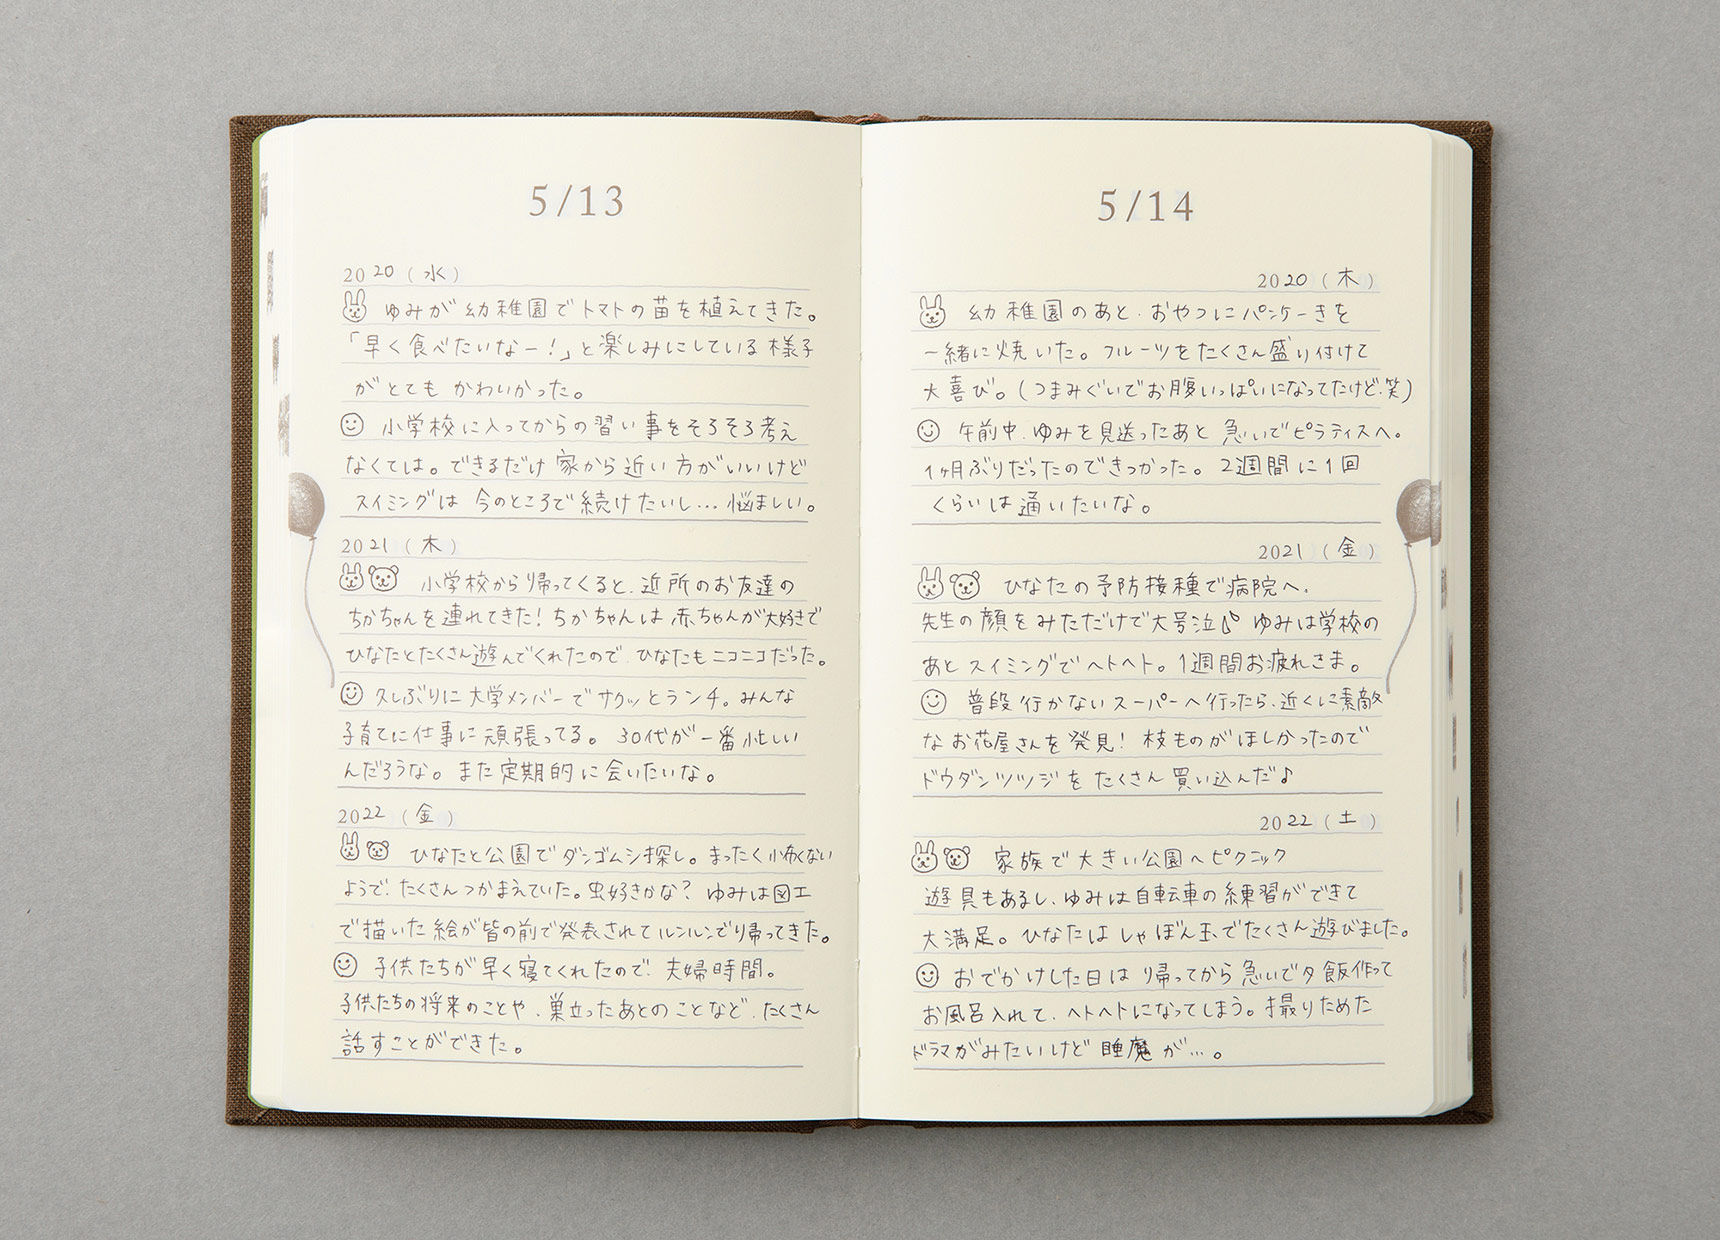 5/13
2020(水)
ゆみが幼稚園でトマトの苗を植えてきた。
「早く食べたいなー!」と楽しみにしている様子
がとてもかわいかった。
小学校に入ってからの習い事をそろそろ考え
なくては。できるだけ家から近い方がいいけど
スイミングは今のところで続けたいし…悩ましい。
2021(木)
小学校から帰ってくると、近所のお友達の
ちかちゃんを連れてきた!ちかちゃんは赤ちゃんが大好きで
ひなたとたくさん遊んでくれたので、ひなたもニコニコだった。
久しぶりに大学メンバーでサクッとランチ。みんな
子育てに仕事に頑張ってる。30代が一番忙しい
んだろうな。また定期的に会いたいな。
2022(金)
ひなたと公園でダンゴムシ探し。まったく怖くない
ようで、たくさんつかまえていた。虫好きかな?ゆみは図工
で描いた絵が皆の前で発表されてルンルンで帰ってきた。
子供たちが早く寝てくれたので、夫婦時間。
子供たちの将来のことや、巣立ったあとのことなど、たくさん
話すことができた。
5/14
2020(木)
幼稚園のあと、おやつにパンケーキを
一緒に焼いた。フルーツをたくさん盛り付けて
大喜び。(つまみぐいでお腹いっぱいになってたけど、笑)
午前中、ゆみを見送ったあと急いでピラティスへ。
1ヶ月ぶりだったのできつかった。2週間に1回
くらいは通いたいな。
2021(金)
ひなたの予防接種で病院へ、
先生の顔をみただけで大号泣 ゆみは学校の
あとスイミングでヘトヘト。1週間お疲れさま。
普段行かないスーパーへ行ったら、近くに素敵
なお花屋さんを発見!枝ものがほしかったので
ドウダンツツジをたくさん買い込んだ♪
2022(土)
家族で大きい公園へピクニック
遊具もあるし、ゆみは自転車の練習ができて
大満足。ひなたはしゃぼん玉でたくさん遊びました。
おでかけした日は帰ってから急いで夕飯作って
お風呂入れて、ヘトヘトになってしまう。撮りためた
ドラマがみたいけど睡魔が…。